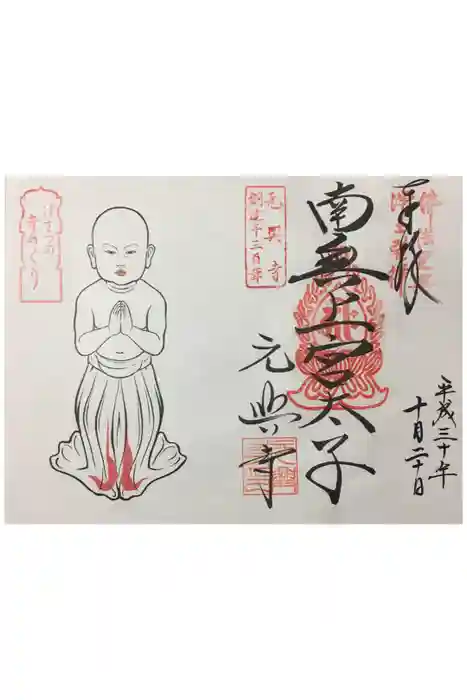 奉拝
平成三十年
十月二十日
南無上宮太子
元興寺
元興寺
創建千三百年